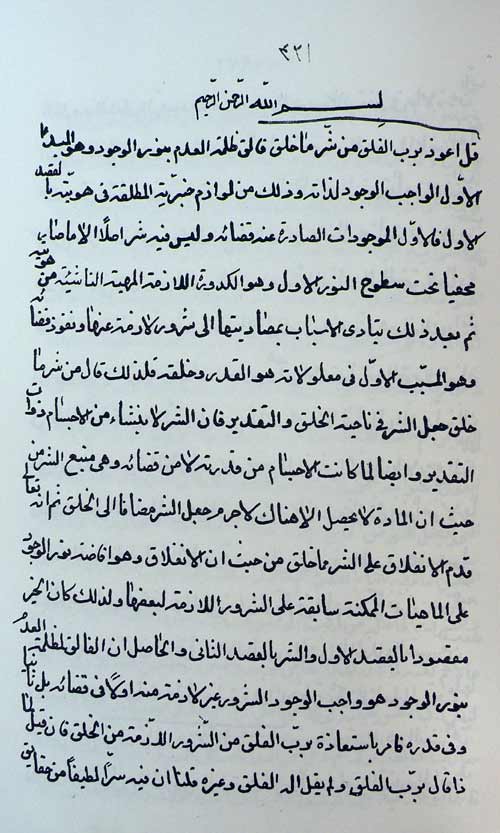 ٣٢١
بسم الله الرحمن الرحيم
قل اعوذ برب الفلق من شر ما خلق فالق ظلمة العدم بنور الوجود وهو المبدأ
الاول الواجب الوجود لذاته وذلك من لوازم خيريته المطلقة فى هويته بالقصد
الاول فالاول الموجودات الصادرة عنه قضائه وليس فيه شر اصلا الا ما صار
مخفيا تحت سطوع النور الاول وهو الكدورة اللازمة المهية الناشية من هويته
ثم بعد ذلك يتادى الاسباب بمصادمتها الى شرور لازمة عنها ونفوذ قضائه
وهو المسبب الاول فى معلولاته هو القدر وخلقه فلذلك قال من شر ما
خلق جعل الشر فى ناحية الخلق والتقدير فان الشر لا ينشاء من الاجسام ذوات
التقدير وايضا لما كانت الاجسام من قدرته لا من قضائه وهى منبع الشر من
حيث ان المادة لا يحصل الا هناك لا جرم جعل الشر مضافا الى الخلق ثم انه تعالى
قدم الانفلاق على الشر ما خلق من حيث ان الانفلاق وهو افاضة نور الوجود
على الماهيات الممكنة سابقة على الشرور اللازمة لبعضها ولذلك كان الخير
مقصودا بالقصد الاول والشر بالقصد الثانى والحاصل ان الفالق لظلمة العدم
بنور الوجود هو واجب الوجود الشرور غير لازمة منه اولا فى قضائه بل ثانيا
وفى قدره فامر باستعاذة برب الفلق من الشرور اللازمة من الخلق فان قيل لما
ذا قال برب الفلق ولم يقل اله الفلق وغيره قلنا ان فيه سرا لطيفا من حقايق